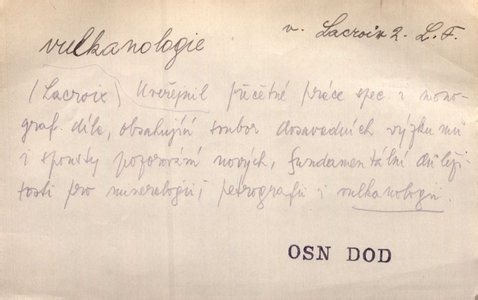 vulkanologie
v. Lacroix 2. L. F.
(Lacroix) Uveřejnil přečetné práce spec. i mono-
graf. díla, obsahující soubor dosavadních výzkumů
i spousty pozorování nových, fundamentální důleži-
tosti pro mineralogii, petrografii i vulkanologii.
OSN DOD